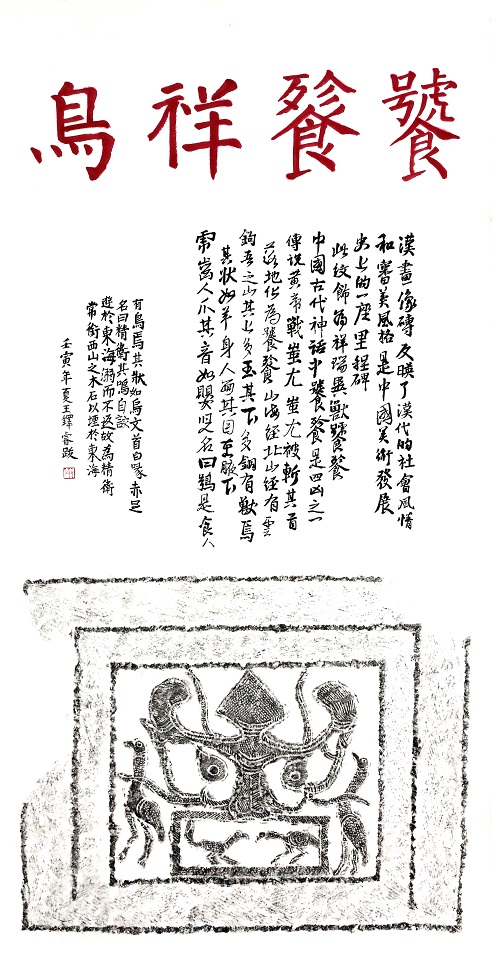 饕餮祥鳥
漢畫像磚反映了漢代的社會風情
和審美風格是中國美術發展
史上的一座里程碑
此紋飾為祥瑞異獸饕餮
中國古代神話中饕餮是四凶之一
傳說黃帝戰蚩尤蚩尤被斬其首
落地化為饕餮山海經北山經有雲
鉤吾之山其上多玉其下多銅有獸焉
其狀如羊身人面其目在腋下
虎齒人爪其音如嬰兒名曰鴞是食人
有鳥焉其狀如烏文首白喙赤足
名曰精衛其鳴自詨
遊於東海溺而不返故為精衛
常銜西山之木石以堙於東海
壬寅年夏王鐸跋